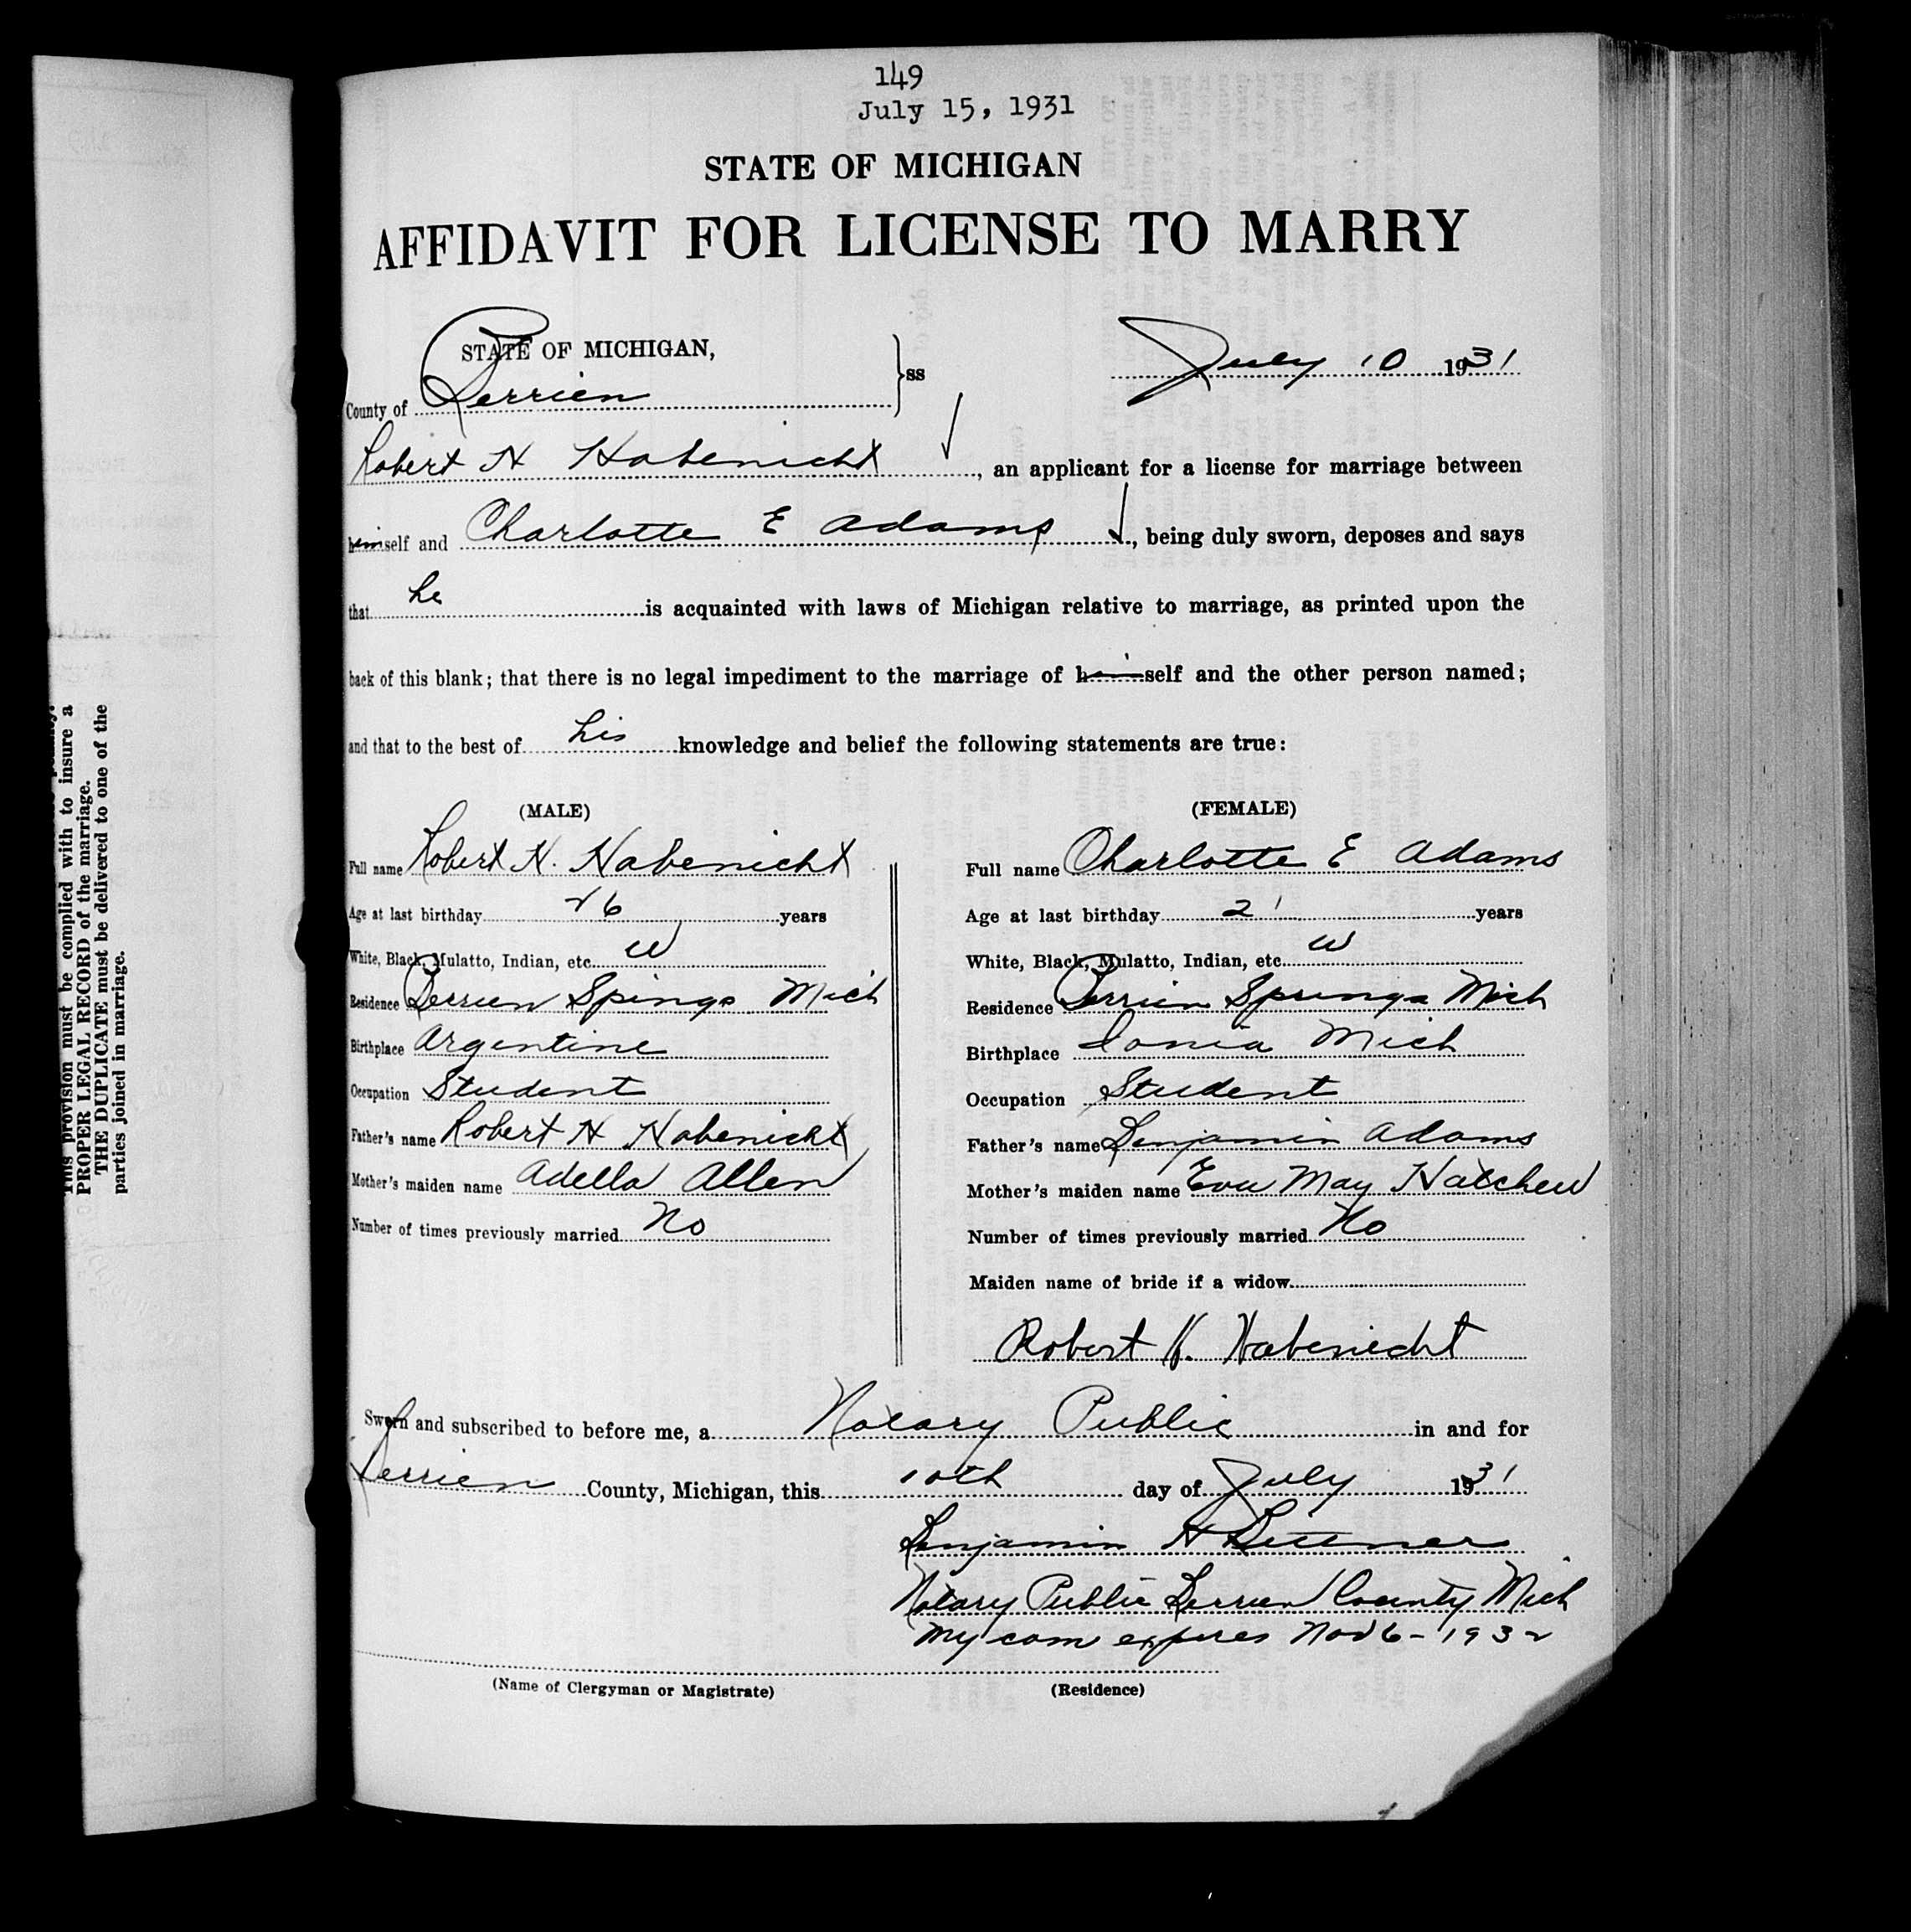 149
July 15, 1931
STATE OF MICHIGAN
AFFIDAVIT FOR LICENSE TO MARRY
STATE OF MICHIGAN,
County of Berrien } ss
July 10 1931
Robert H Habenicht, an applicant for a license for marriage between
himself and Charlotte E Adams, being duly sworn, deposes and says
that he is acquainted with laws of Michigan relative to marriage, as printed upon the
back of this blank; that there is no legal impediment to the marriage of himself and the other person named;
and that to the best of his knowledge and belief the following statements are true:
(MALE)
Full name Robert H. Habenicht
Age at last birthday 26 years
White, Black, Mulatto, Indian, etc. W
Residence Berrien Spings Mich
Birthplace Argentine
Occupation Student
Father's name Robert H Habenicht
Mother's maiden name Adella Allen
Number of times previously married No
(FEMALE)
Full name Charlotte E Adams
Age at last birthday 21 years
White, Black, Mulatto, Indian, etc. W
Residence Berrien Springs Mich
Birthplace Ionia Mich
Occupation Student
Father's name Benjamin Adams
Mother's maiden name Eva May
Number of times previously married No
Maiden name of bride if a widow
Robert H. Habenicht
Sworn and subscribed to before me, a Notary Public in and for
Berrien County, Michigan, this 10th day of July 1931
Benjamin H
Notary Public Berrien County Mich
My com expires Nov 6 - 1932
(Name of Clergyman or Magistrate) (Residence)
This provision must be complied with to insure a
PROPER LEGAL RECORD of the marriage.
THE DUPLICATE must be delivered to one of the
parties joined in marriage.